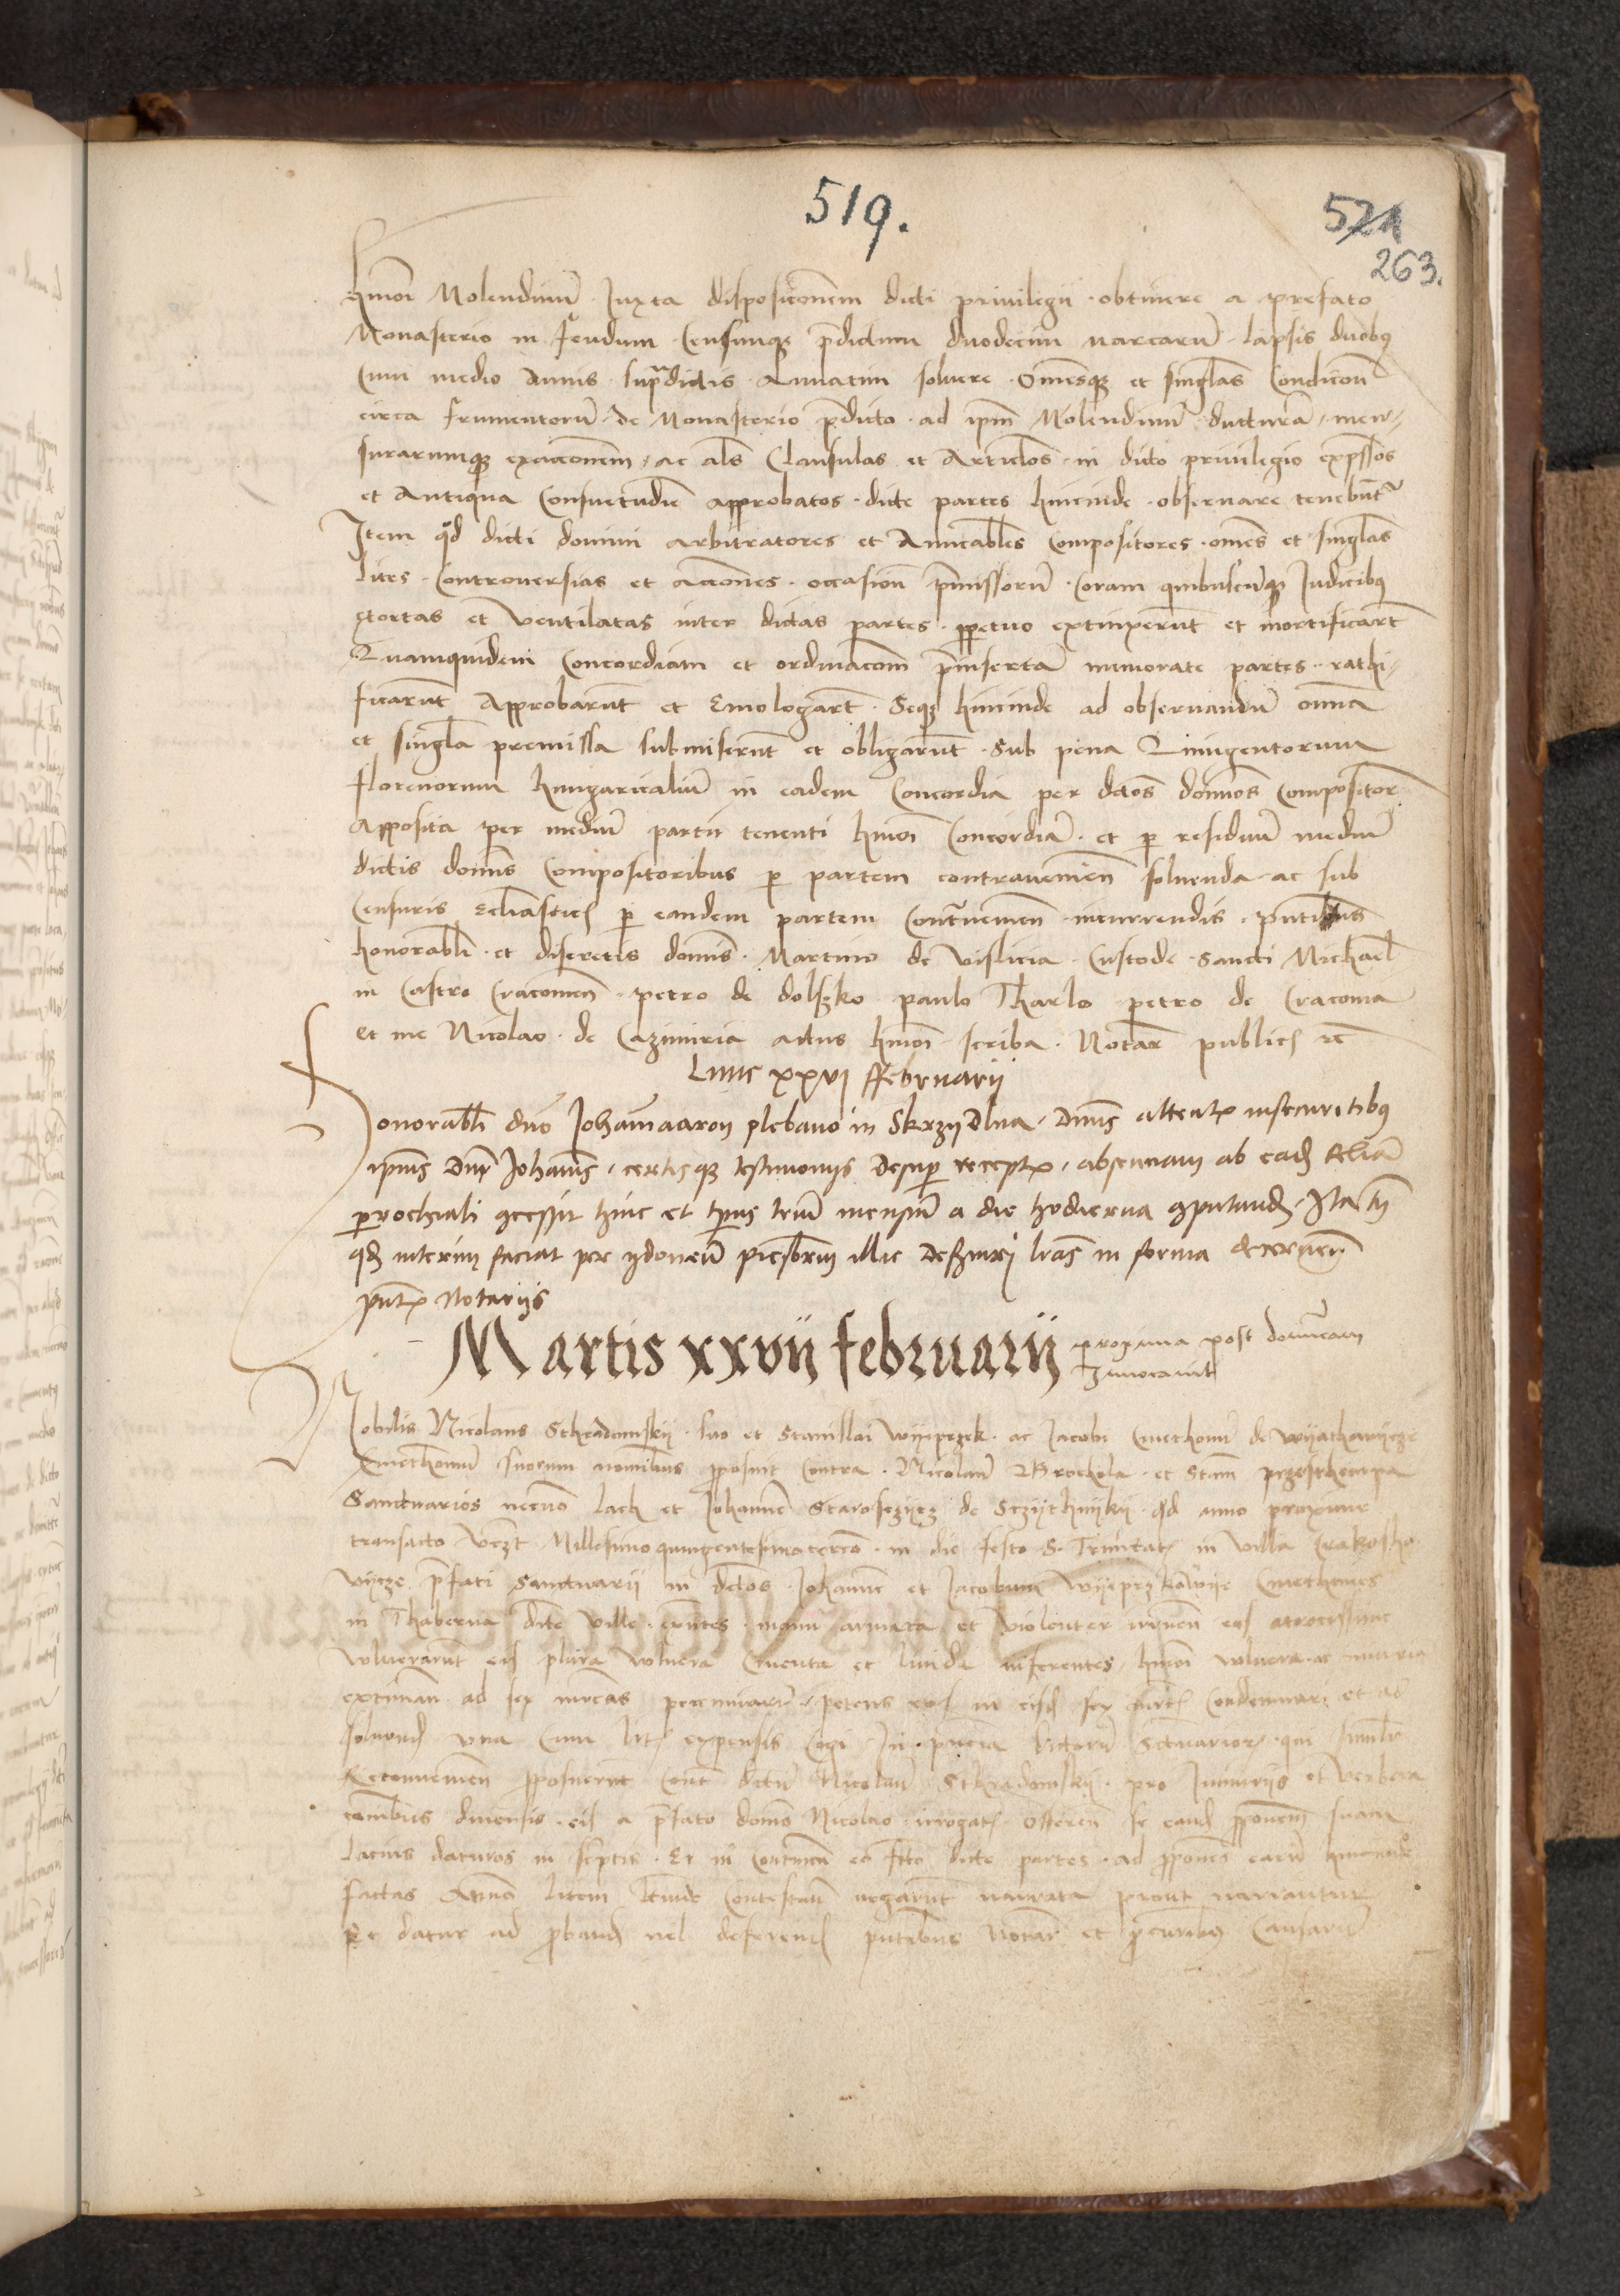 519.
521
263.
hmoi Molendinū Iuxta dispositionem dicti privilegii obtinere a prefato
Monasterio in feudum Censumqz p̄dictum duodecim marcarū lapsis duobꝫ
Cum medio Annis sup̄dictis Annatim solvere Omnesqz et singlās Condicōn
circa frumentorū de Monasterio p̄dicto ad ipm̄ Molendinū ducturā men-
surarumqz exaccionem ac als Clausulas et Articlos in dicto privilegio exp̄ssos
et Antiqua Consuetudīe approbatos dicte partes hincinde observare tenebūt
Item qd dicti domini arbitratores et Amicables Compositores omēs et singlās
lites Controversias et acciones occasiōn p̄missorū Coram quibuscūqz Iudicibꝫ
motas et ventilatas inter dictas partes ppetuo extinxerūt et mortificārt
Quamquidem Concordiam et ordinacōm p̄insertā memorate partes rathi-
ficarūt Approbarūt et Emologārt Seqz hincinde ad observandū omnā
et singlā premissa submiserūt et obligarūt Sub pena Quingentorum
florenorum hungaricaliū in eadem Concordia per dcōs domnos Compositor
Apposita per mediū parti tenenti hmoi Concordiā et p residuū mediū
dictis domīs Compositoribus p partem contravenien̄ solvenda ac sub
Censuris Eccliasticis p eandem partem Cont̄venien̄ incurrendis pn̄tibus
honorabli et discretis domīs Martino de vislicia Custode Sancti Michael
in Castro Cracovien̄ petro de dolszko paulo Tharlo petro de Cracovia
et me Nicolao de Cazimiria actus hmoi scriba Notar publicis rc
Lune xxvi ffebruarij
Honorabli dno Johanni aaron plebano in Skrzijdlna Dnus attentis insecuritibꝫ
ipius Dni Johannis certisqz testimonijs desup receptis absentiam ab ead Ecliā
parochiali concessit hinc et ipius triū mensiū a die hodierna computand Ita tn̄
qd interim faciat per ydoneū presbrm illic deserviri lrās in forma decernen̄
pn̄t Notarijs
Martis xxvij februarij proxima post dominicam
Invocavit
Nobilis Nicolaus Sthradomskij suo et Stanislai Wijeprzek ac Jacobi Cmethonū de Wijathowijcze
Cmethonum suorum nominibus pposuit Contra Nicolaū Brochola et Stan̄ przesthempa
Sanctuarios necnō lach et Johanne Staroscijcz de Sczijthnijkij qd anno proxime
transacto vczt Millesimoquingentesimotercio in die festo S. Trinitatis in villa Crakosho
wijcze p̄fati Sanctuarij in dcōs Johanne et Jacobum Wijeprzkowije Cmethones
in Thaberna dicte ville exn̄tes manu armata et violenter irruen̄ eos atrocissime
vulnerarūt eis plura vulnera Cruenta et livida inferentes hmoi vulnera ac iniuria
extiman ad sex mrcas pecuniariū petens eos in eisd sex mrcis Condemnari et ad
solvend una Cum litis expensis Cogi In pn̄cia dictorū Sctuarior qui similr
Reconvenien̄ pposuerūt Cont dictū Nicolaū Sthradomskij pro Iniurijs et verbera
cōnibus diversis eis a p̄fato domō Nicolao irrogatis Offeren̄ se eand pponem suam
Lacius daturos in scptis Et in Continēti eō fcto dicte partes ad ppones earū hincinde
factas Animo litem Contestan̄ negarūt narrata prout narrantur
Et datur ad pband vel deferend pn̄tibus Notar et pcuribꝫ Causarū